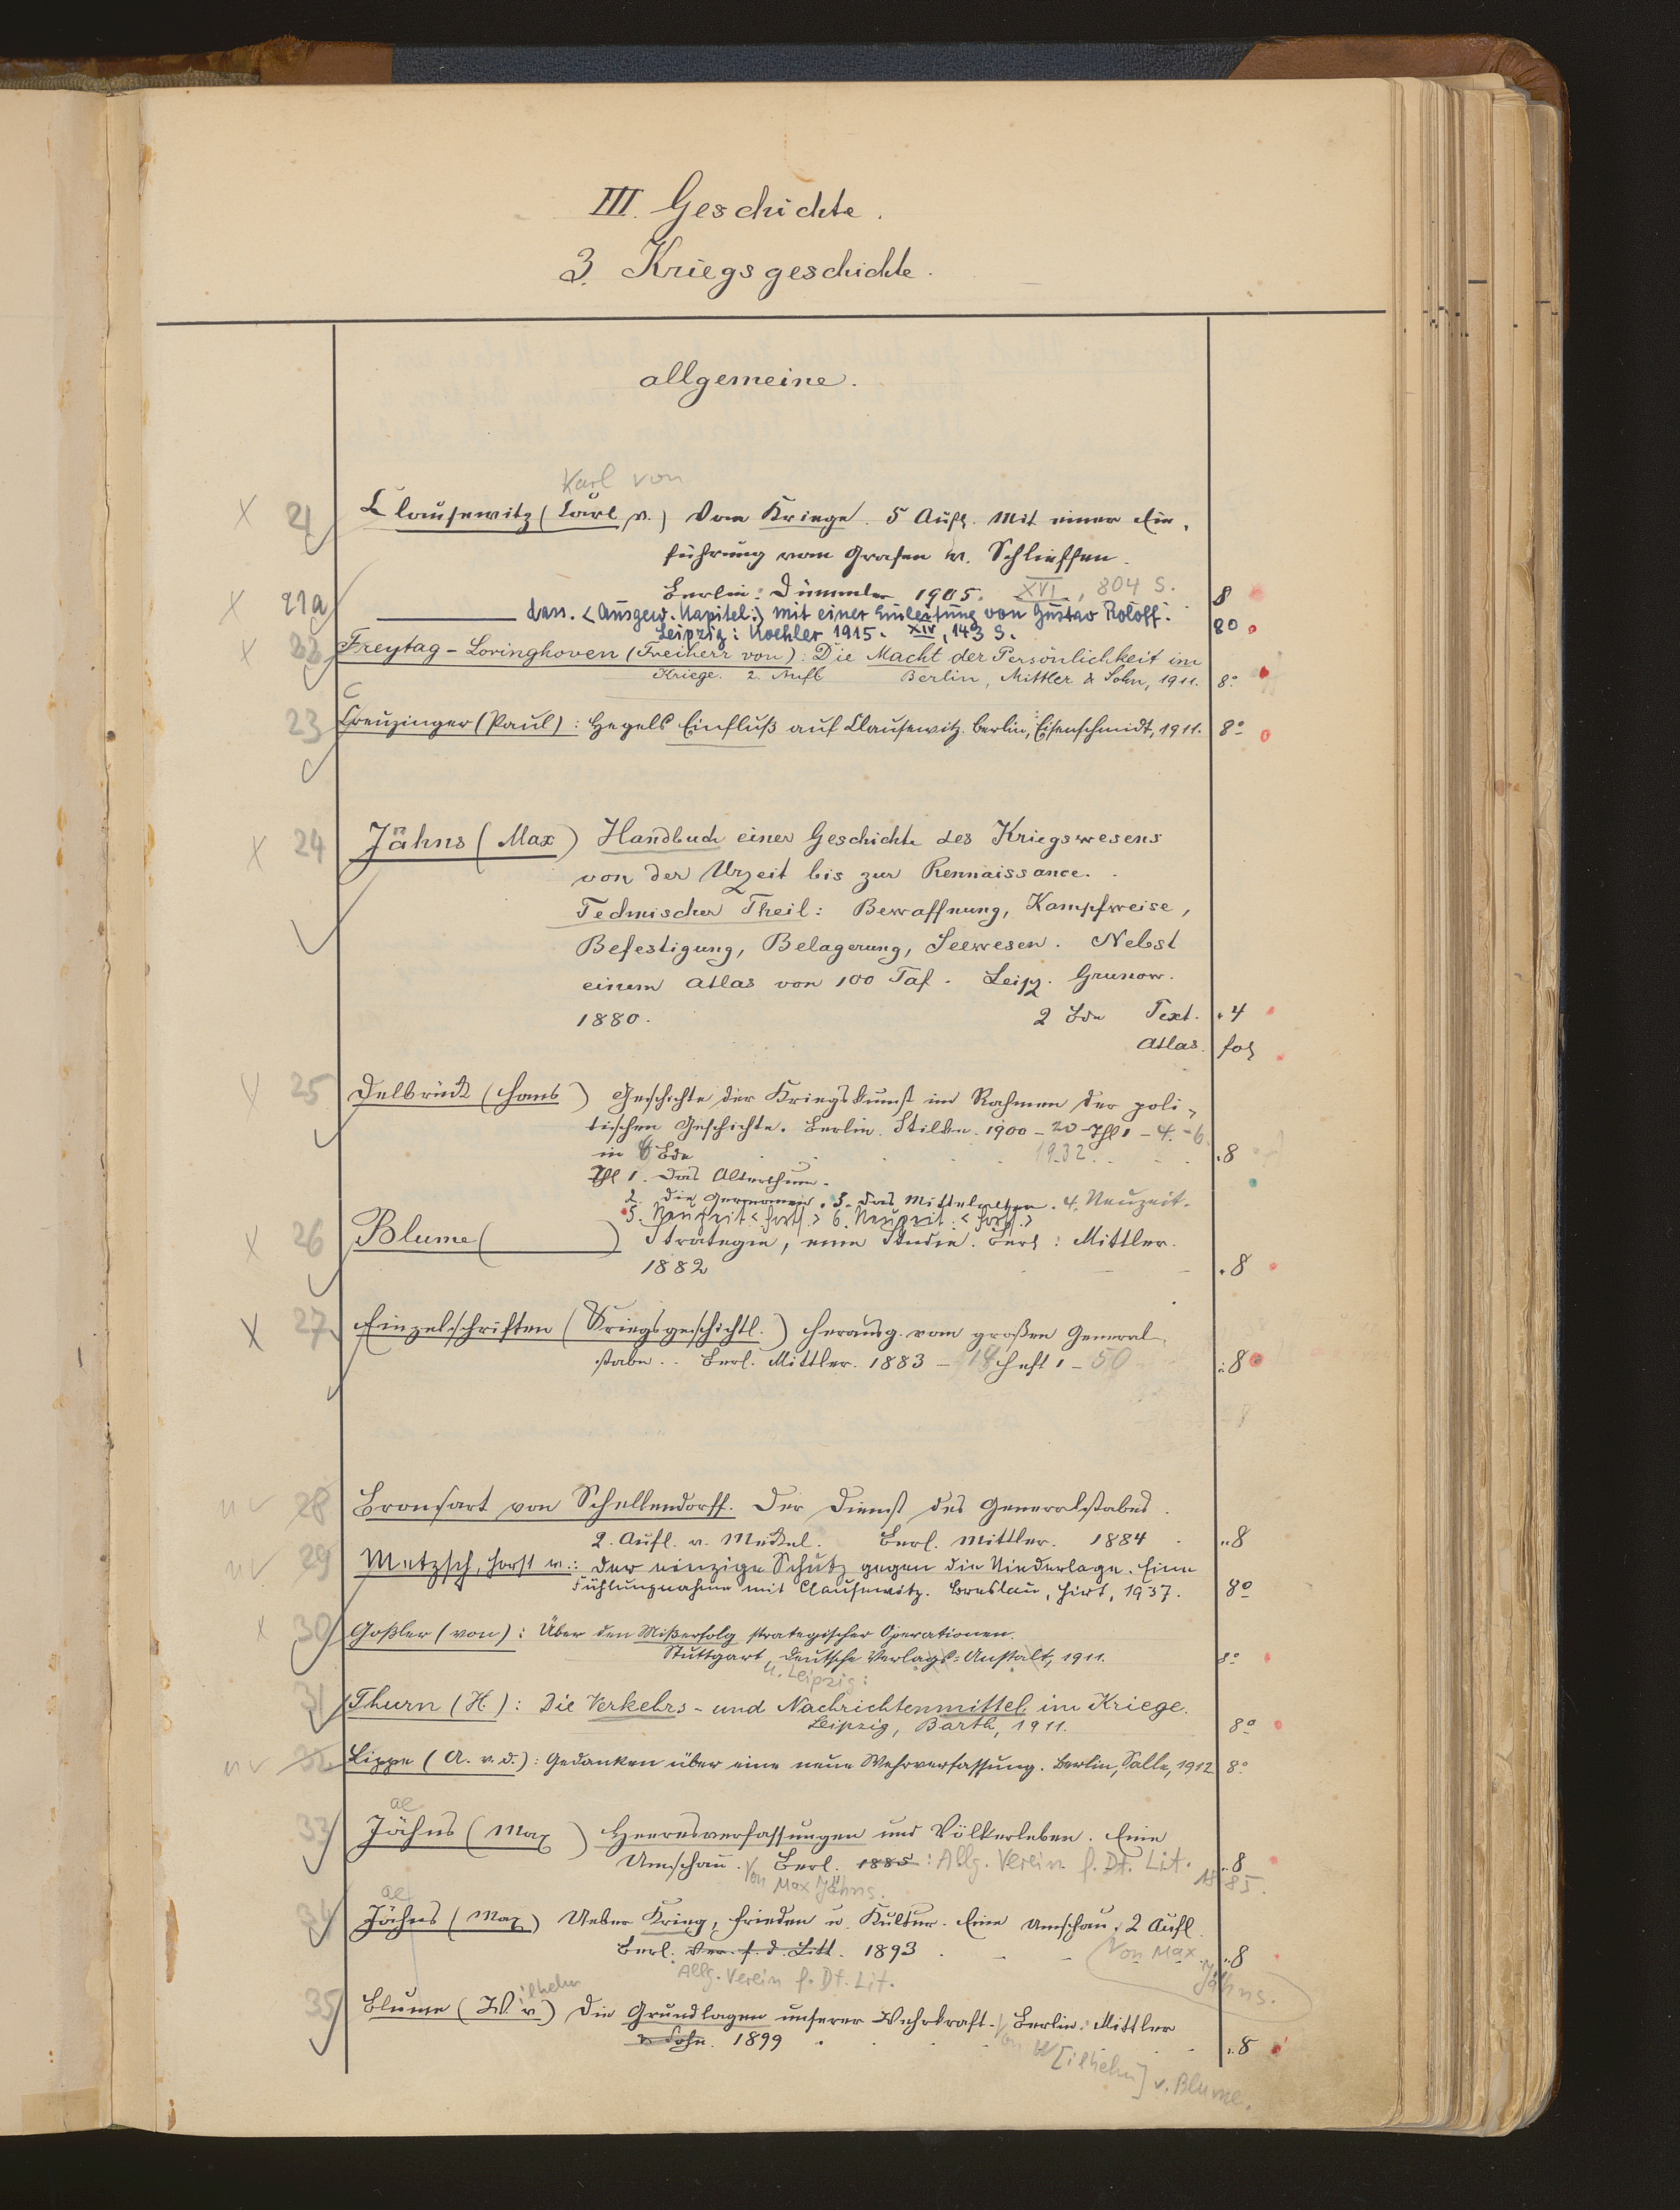 III. Geschichte.
3. Kriegsgeschichte.
allgemeine.
Karl von
X 21 Clausewitz (Carl v.) Vom Kriege. 5 Aufl. Mit einer Ein-
führung vom Grafen v. Schlieffen.
Berlin: Dümmler 1905. XVI, 804 S. 8
X 21a dass. <Ausgew. Kapitel:> mit einer Einleitung von Gustav Roloff. 80
Leipzig: Koehler 1915. XIV, 143 S.
X 22 Freytag-Loringhoven (Freiherr von): Die Macht der Persönlichkeit im
Kriege. 2. Aufl Berlin, Mittler & Sohn, 1911. 8°
C
23 Creuzinger (Paul): Hegels Einfluß auf Clausewitz. Berlin, Eisenschmidt, 1911. 8°
X 24 Jähns (Max) Handbuch einer Geschichte des Kriegswesens
von der Urzeit bis zur Rennaissance.
Technischer Theil: Bewaffnung, Kampfweise,
Befestigung, Belagerung, Seewesen. Nebst
einem Atlas von 100 Taf. Leipz. Grunow.
1880. 2 Bde Text. 4
Atlas. fol
25 Delbrück (Hans) Geschichte der Kriegskunst im Rahmen der poli-
tischen Geschichte. Berlin. Stilke. 1900-20 Thl 1-4.-6.
in 6 Bde 1932. 8
Thl 1. Das Alterthum.
2. Die Germanen. 3. Das Mittelalter. 4. Neuzeit.
5. Neuzeit <Forts.> 6. Neuzeit: <Forts.>
X 26 Blume ( ) Strategie, eine Studie. Berl: Mittler.
1882 8
X 27 Einzelschriften (Kriegsgeschichtl.) Herausg. vom großen General-
stabe. Berl. Mittler. 1883- Heft 1-50 8
nv 28 Bronsart von Schellendorff. Der Dienst des Generalstabes.
2. Aufl. v. Meckel. Berl. Mittler. 1884 8
nv 29 Metzsch, Horst v.: Der einzige Schutz gegen die Niederlage. Eine
Fühlungnahme mit Clausewitz. Breslau, Hirt, 1937. 8°
X 30 Goßler (von): Über den Mißerfolg strategischer Operationen.
Stuttgart, Deutsche Verlags-Anstalt, 1911. 8°
u. Leipzig:
31 Thurn (H.): Die Verkehrs- und Nachrichtenmittel im Kriege.
Leipzig, Barth, 1911. 8°
nv 32 Lippe (A. v. d.): Gedanken über eine neue Wehrverfassung. Berlin, Salle, 1912 8°
ae
33 Jähns (Max) Heeresverfassungen und Völkerleben. Eine
Umschau. Berl. 1885: Allg. Verein f. Dt. Lit. 8
Von Max Jähns. 1885.
ae
34 Jähns (Max) Ueber Krieg, Frieden u. Kultur. Eine Umschau. 2 Aufl.
Berl. Ver. f. d. Litt. 1893 Von Max 8
Allg. Verein f. Dt. Lit. Jähns.
ilhelm
35 Blume (W. v) Die Grundlagen unserer Wehrkraft. Berlin: Mittler
u Sohn. 1899 8
Von W[ilhelm] v. Blume.